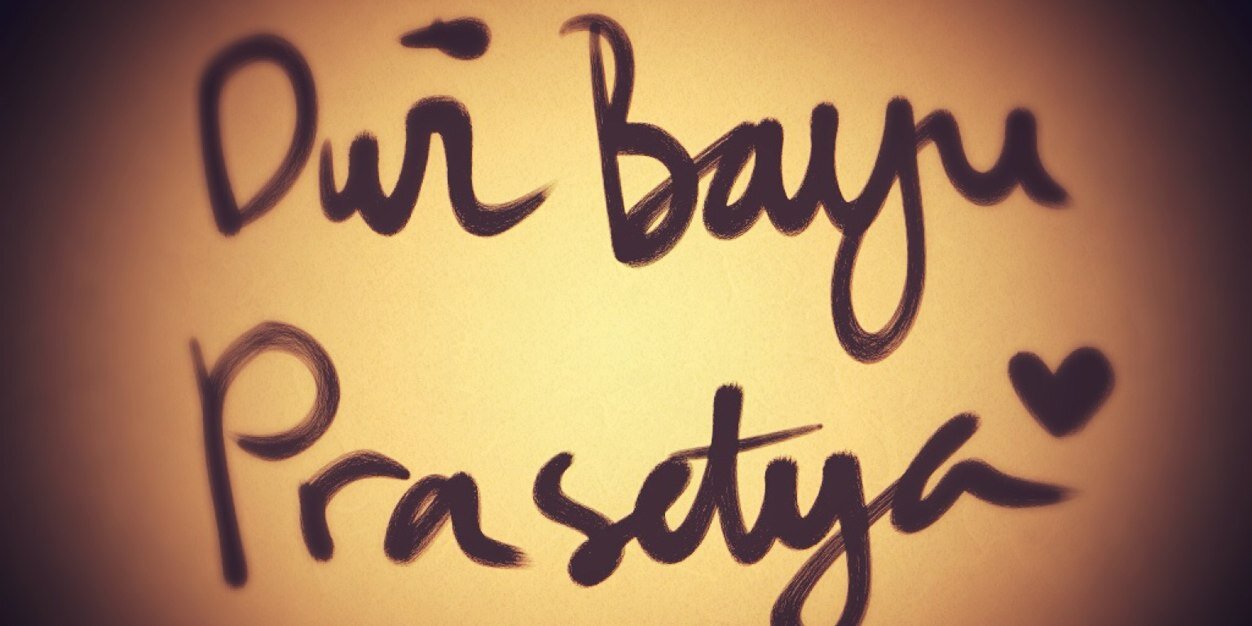 Dwi Bayu
Prasetya